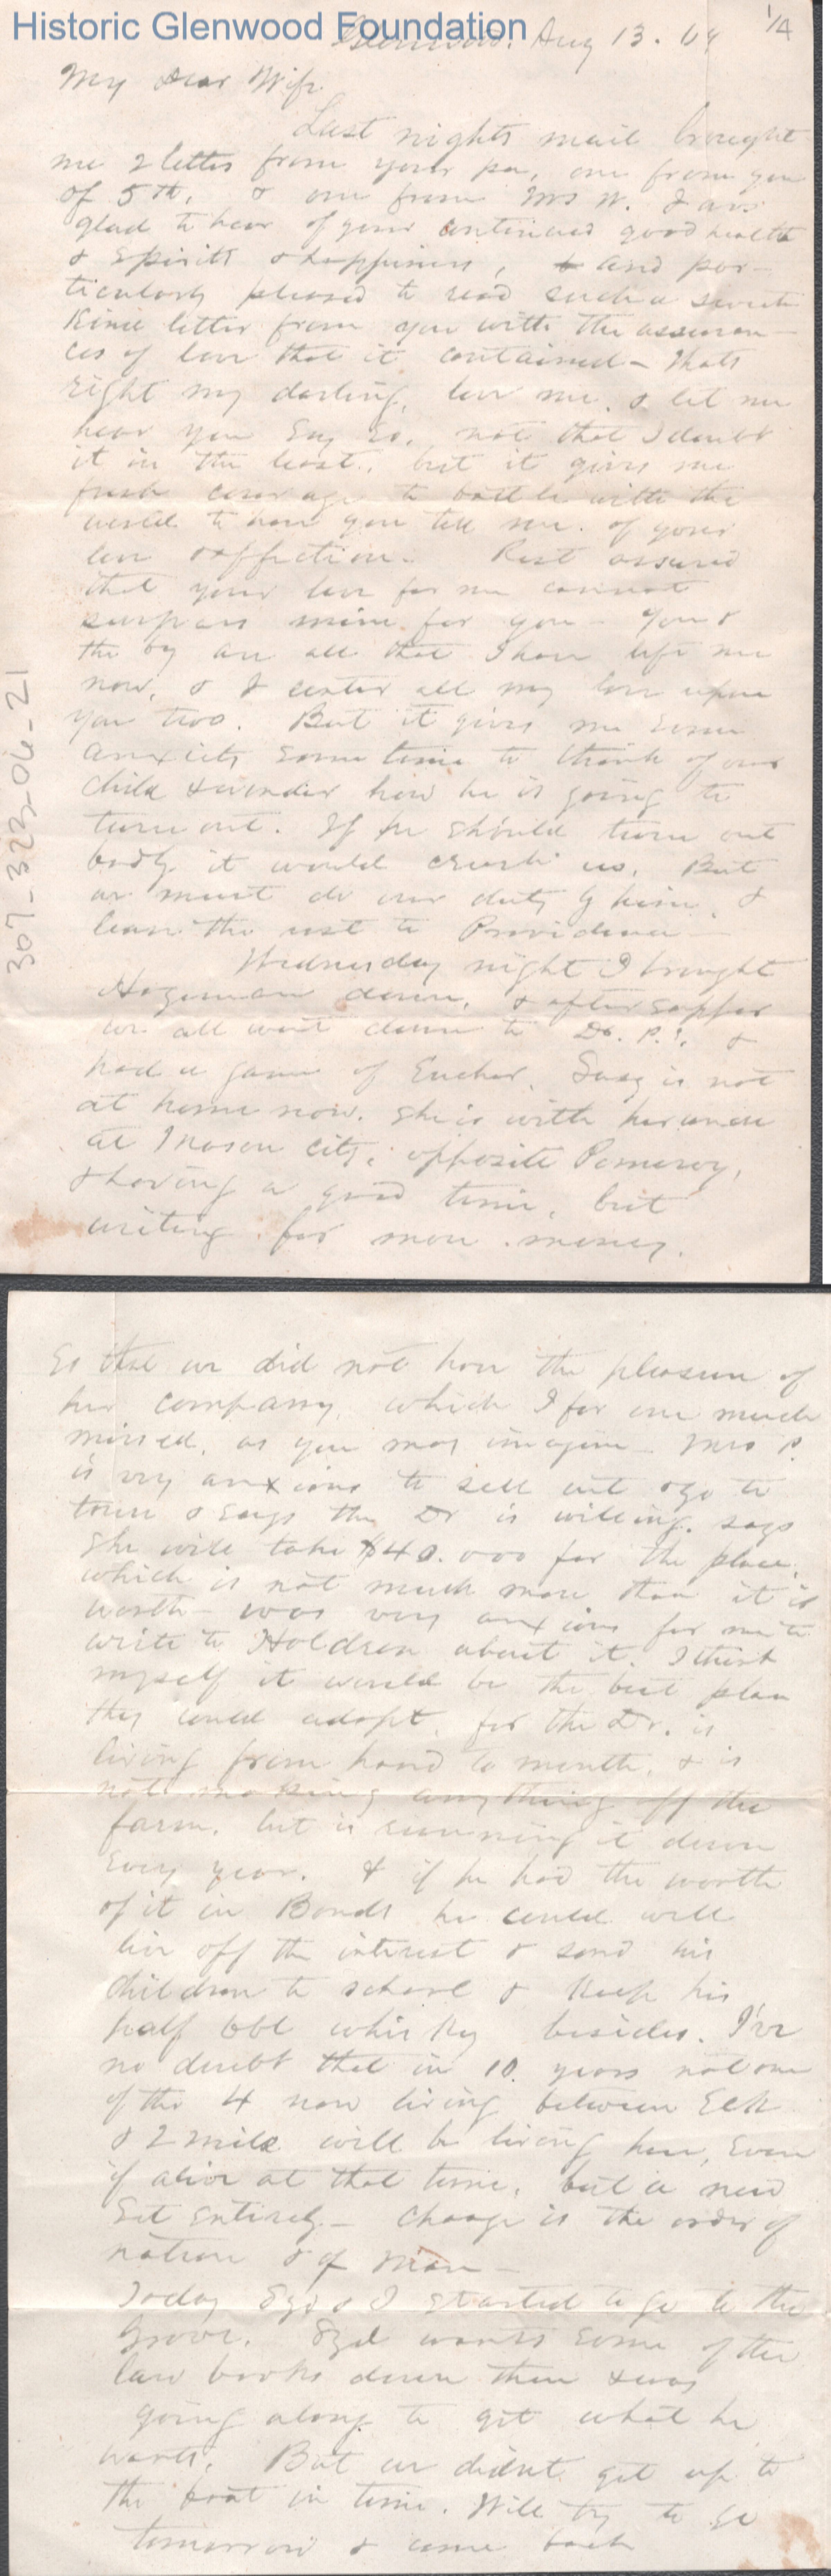 Historic Glenwood Foundation
Glenwood. Aug 13. 69 1/4
My Dear Wife
Last nights mail brought
me 2 letters from your pa, one from you
of 5th, & one from Mrs W. I was
glad to hear of your continued good health
& spirits & happiness, and par-
ticularly pleased to read such a sweet
kind letter from you with the assuran-
ces of love that it contained - Thats
right my darling, love me, & let me
hear you say so, not that I doubt
it in the least, but it gives me
fresh courage to battle with the
world to have you tell me of your
love & affection. Rest assured
that your love for me cannot
surpass mine for you - You &
the boy are all that I have left me
now, & I center all my love upon
you two. But it gives me some
anxiety some time to think of our
child & wonder how he is going to
turn out. If he should turn out
badly it would crush us. But
we must do our duty by him, &
leave the rest to Providence -
Wednesday night I brought
Hageman down, & after supper
we all went down to Dr. P.'s, &
had a game of Euchre. Susy is not
at home now. She is with her uncle
at Mason City, opposite Pomeroy,
& having a good time, but
writing for more money.
307-323-06-21
So that we did not have the pleasure of
her company, which I for one much
missed, as you may imagine - Mrs P.
is very anxious to sell out & go to
town & says the Dr is willing. says
she will take $40.000 for the place,
which is not much more than it is
worth - was very anxious for me to
write to Holdren about it. I think
myself it would be the best plan
they could adopt, for the Dr. is
living from hand to mouth, & is
not making anything off the
farm, but is running it down
every year. & if he had the worth
of it in Bonds he could well
live off the interest & send his
children to school & keep his
half bbl whisky besides. I've
no doubt that in 10 years not one
of the 4 now living between Elk
& 2 mile will be living here, even
if alive at that time, but a new
set entirely - Change is the order of
nature & of man -
Today Syd & I started to go to the
Grove. Syd wants some of the
law books down there & was
going along to get what he
wants. But we didnt get up to
the boat in time. Will try to go
tomorrow & come back